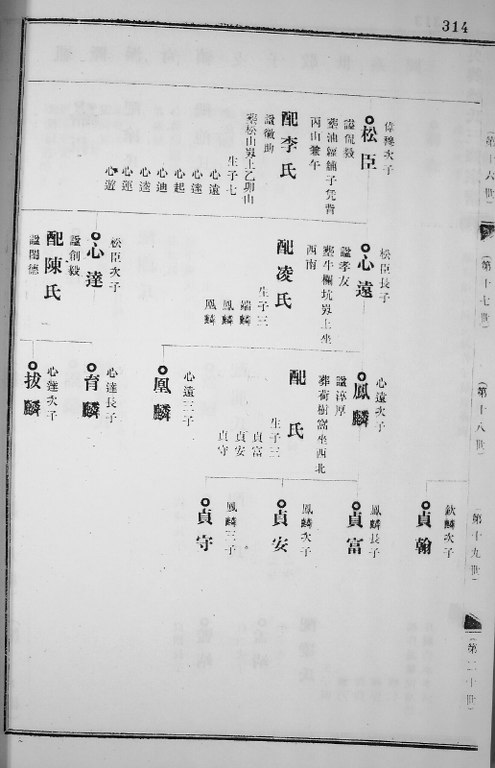 314
(第十六世)
偉穆次子
松臣
諡侃毅
葬油籮鋪子凭背
丙山兼午
配李氏
諡徽勤
葬松山崠上乙卯山
生子七
心遠
心達
心起
心迪
心逵
心運
心遊
(第十七世)
松臣長子
心遠
諡孝友
葬牛欄坑崠上坐
西南
配凌氏
生子三
端麟
鳳麟
凰麟
松臣次子
心達
諡創毅
配陳氏
諡閏德
(第十八世)
心遠次子
鳳麟
諡淳厚
葬荷樹窩坐西北
配 氏
生子三
貞富
貞安
貞守
心遠三子
凰麟
心達長子
育麟
心達次子
拔麟
第十九世)
欽麟次子
貞翰
鳳麟長子
貞富
鳳麟次子
貞安
鳳麟三子
貞守
(第二十世)